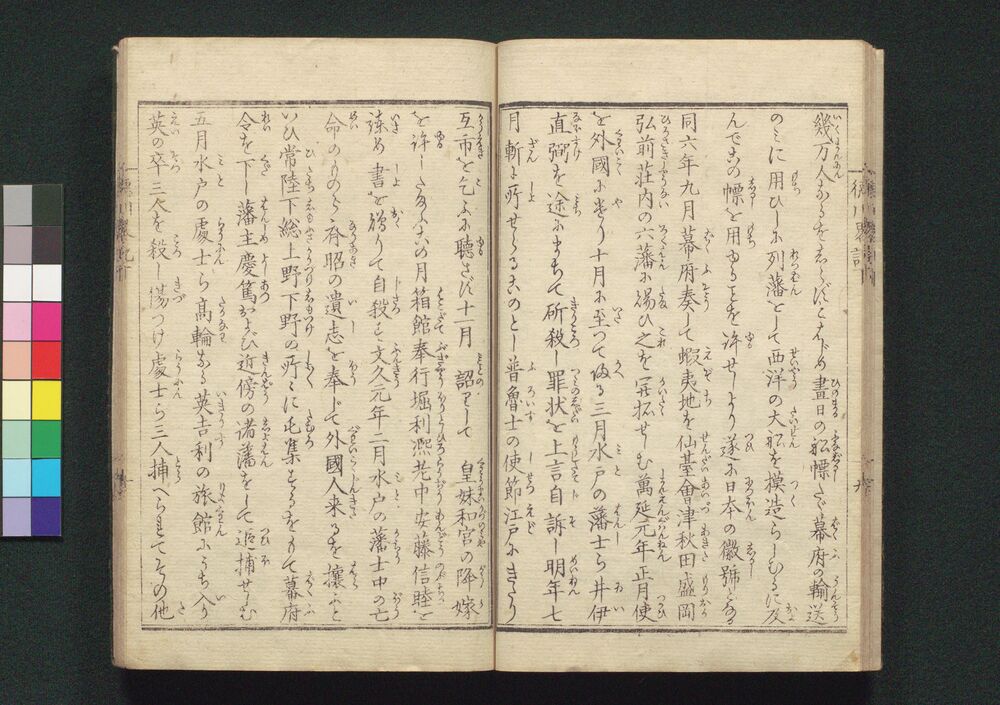 幾万人なるをしらずはじめ晝日の船幖たゞ幕府の輸送
のみに用ひしに列藩として西洋の大船を模造らしむるに及
んでこの幖を用ゆることを許せしより遂に日本の徽號となる
同六年九月幕府奏して蝦夷地を仙臺會津秋田盛岡
弘前荘内の六藩に賜ひ之を開拓せしむ萬延元年正月使
を外國に遣り十月に至つて帰る三月水戸の藩士ら井伊
直弼を途にうちて斫殺し罪状を上言自訴し明年七
月斬に所せらるこのとし普魯士の使節江戸にきたり
互市を乞ふに聴さず十一月 詔して 皇妹和宮の降嫁
を許したまふこの月箱館奉行堀利煕老中安藤信睦を
諫め書を貽りて自殺す文久元年二月水戸の藩士中の亡
命のものら斉昭の遺志を奉じて外國人来るを攘ふと
いひ常陸下総上野下野の所々に屯集するをもて幕府
令を下し藩主慶篤および近傍の諸藩をして追捕せしむ
五月水戸の處士ら高輪なる英吉利の旅館にうち入り
英の卒三人を殺し傷つけ處士ら三人捕へられてその他